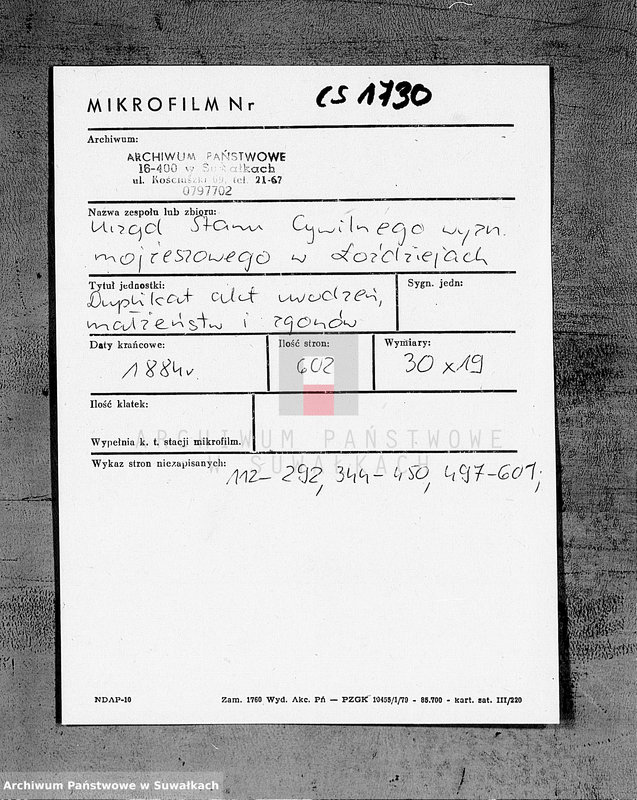 MIKROFILM Nr CS 1730
Archiwum:
ARCHIWUM PAŃSTWOWE
16-400 w Suwałkach
ul. Kościuszki 69, tel. 21-67
0797702
Nazwa zespołu lub zbioru:
Urząd Stanu Cywilnego wyzn.
mojżeszowego w Łoździejach
Tytuł jednostki:
Sygn. jedn:
Duplikat akt urodzeń,
małżeństw i zgonów
Daty krańcowe:
Ilość stron:
Wymiary:
1884r.
602
30 x 19
Ilość klatek:
Wypełnia k. t. stacji mikrofilm.
ARCHIWUM PAŃSTWOWE
W SUWAŁKACH
Wykaz stron niezapisanych:
112-292, 344-450, 497-601;
NDAP-10
Zam. 1760 Wyd. Akc. Pń — PZGK 10455/1/79 - 85.700 - kart. sat. III/220
Archiwum Państwowe w Suwałkach